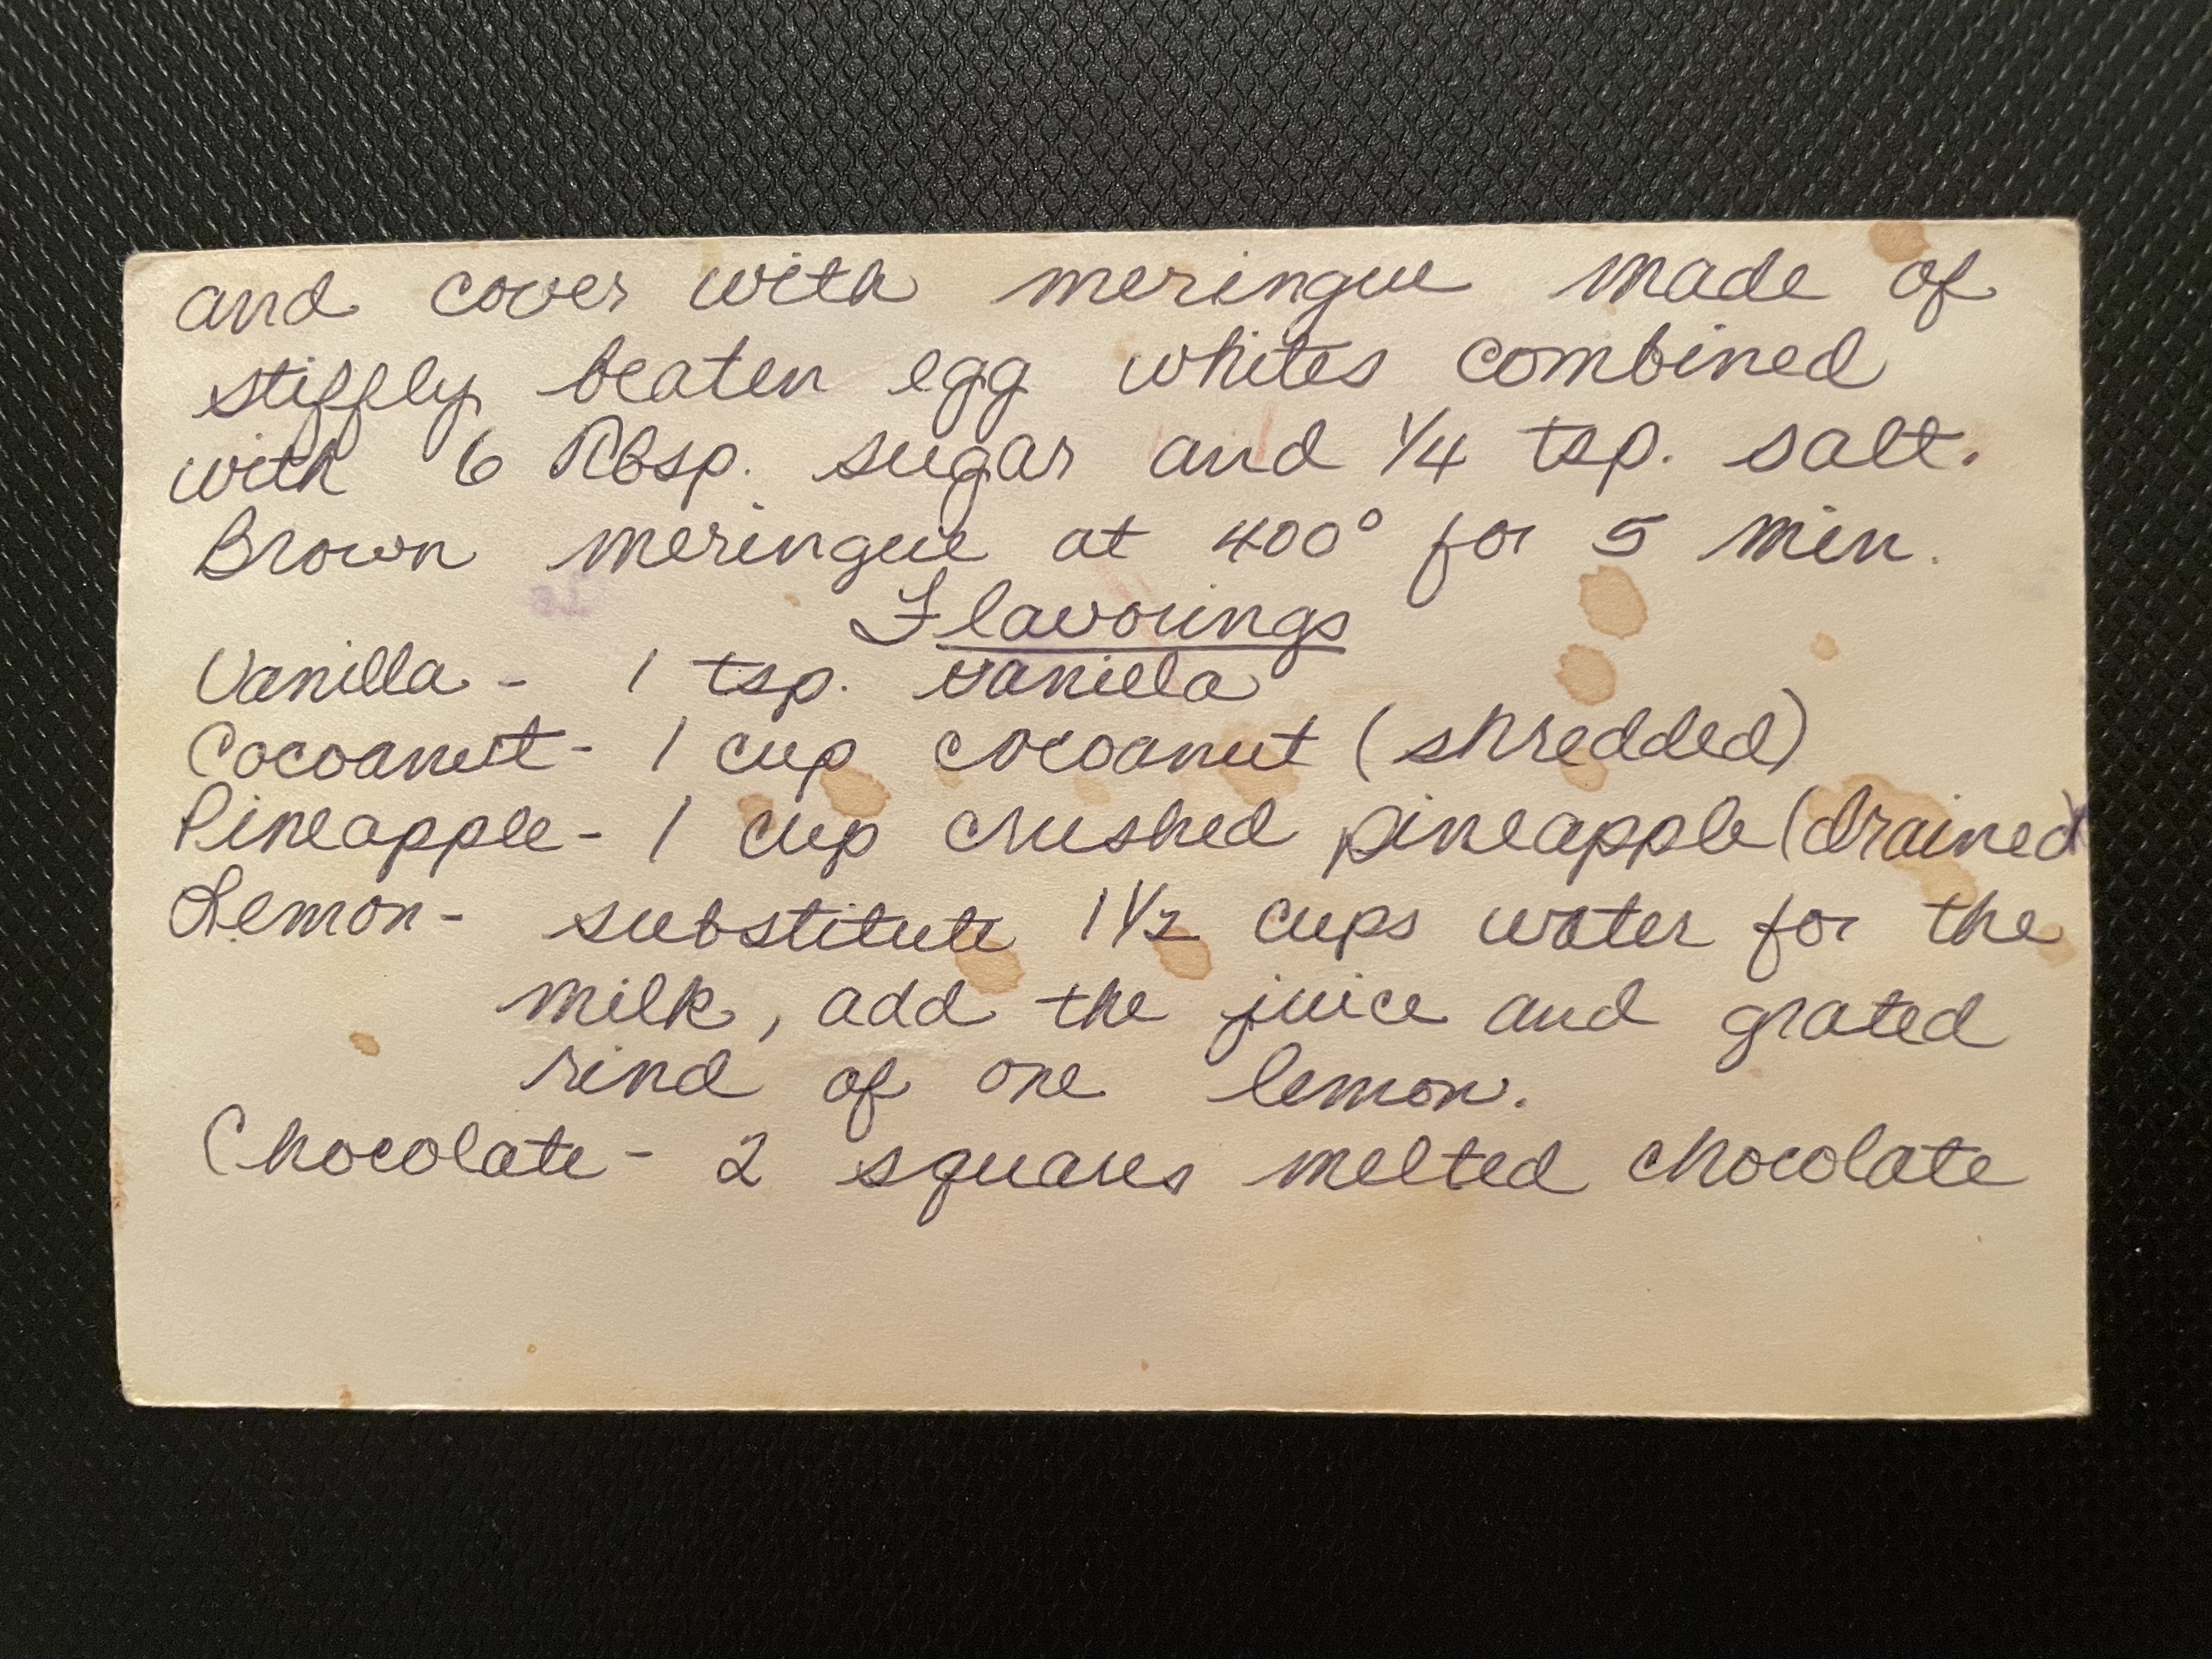 and cover with meringue made of
stiffly beaten egg whites combined
with 6 Tbsp. sugar and 1/4 tsp. salt.
Brown meringue at 400° for 5 min.
Flavorings
Vanilla - 1 tsp. vanilla
Cocoanut - 1 cup cocoanut (shredded)
Pineapple - 1 cup crushed pineapple (drained)
Lemon - substitute 1 1/2 cups water for the
milk, add the juice and grated
rind of one lemon.
Chocolate - 2 squares melted chocolate